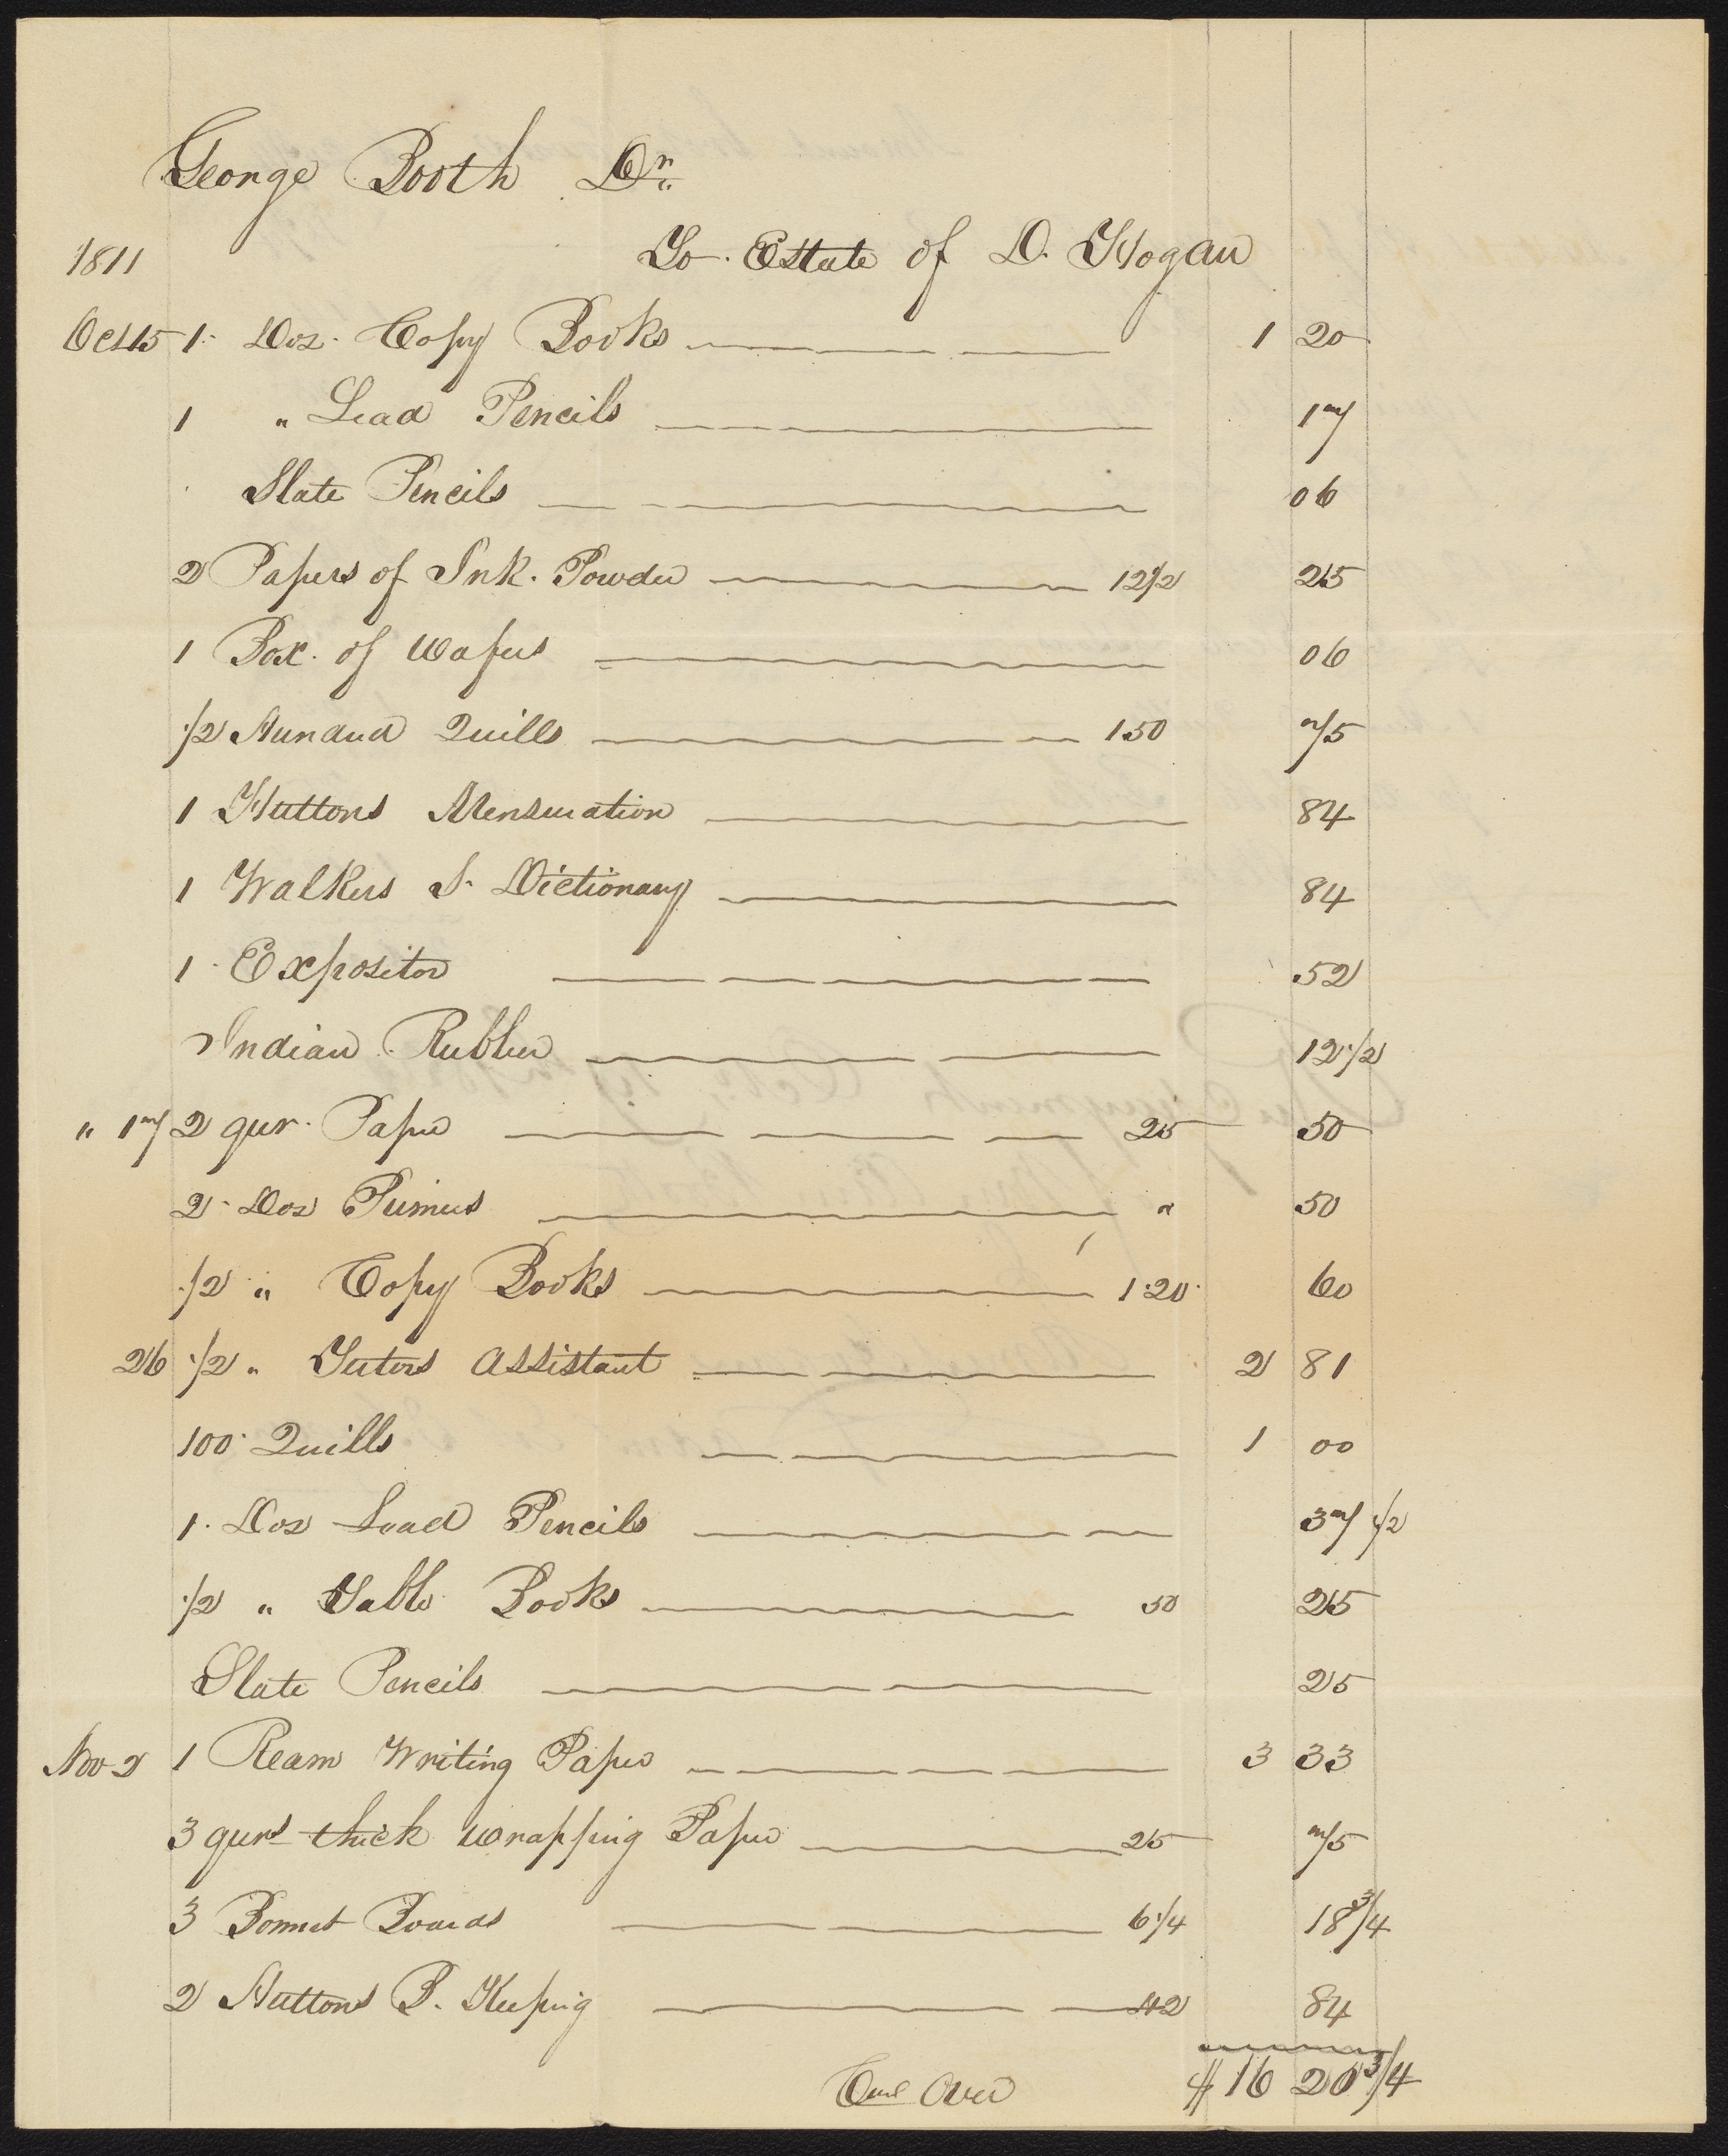 George Booth Dr.
1811 To Estate of D. Hogan
Oct 15 1 Doz. Copy Books 1 20
1 " Lead Pencils 17
Slate Pencils 06
2 Papers of Ink Powder 12 1/2 25
1 Box of Wafers 06
1/2 Hundred Quills 150 75
1 Huttons Mensuration 84
1 Walkers S. Dictionary 84
1 Expositor 52
Indian Rubber 12 1/2
" 17 2 qur. Paper 25 50
2 Doz Primers " 50
1/2 " Copy Books 1.20 60
26 1/2 " Tutors Assistant 2 81
100 Quills 1 00
1 Doz Lead Pencils 37 1/2
1/2 " Table Books 50 25
Slate Pencils 25
Nov 2 1 Ream Writing Paper 3 33
3 qurs thick wrapping Paper 25 75
3 Bonnet Boards 6 1/4 18 3/4
2 Huttons B. Keeping 42 84
Over $16 20 3/4